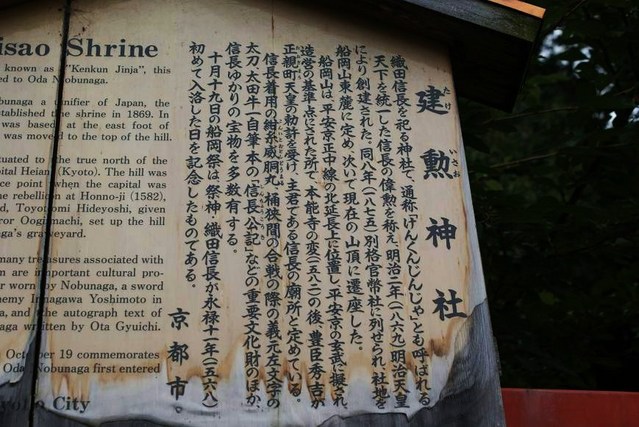 isao Shrine
known as "Kenkun Jinja", this
ed to Oda Nobunaga.
bunaga a unifier of Japan, the
tablished the shrine in 1869. In
was based at the east foot of
was moved to the top of the hill.
tuated to the true north of the
ital Heian (Kyoto). The hill was
ce point when the capital was
e rebellion at Honno-ji (1582),
d, Toyotomi Hideyoshi, given
ror Oogimachi, set up the hill
ga's graveyard.
many treasures associated with
n are important cultural pro-
r worn by Nobunaga, a sword
hemy Innagawa Yoshimoto in
a, and the autograph text of
naga written by Ota Gyuichi.
October 19 commemorates
Oda Nobunaga first entered
yoto City
建勲神社
たけ いさお
織田信長を祀る神社で、通称「けんくんじんじゃ」とも呼ばれる
天下を統一した信長の偉勲を称え、明治二年(一八六九)明治天皇
により創建された。同八年(一八七五)別格官幣社に列せられ、社地を
船岡山東麓に定め、次いで現在の山頂に遷座した。
船岡山は、平安京正中線の北延長上に位置し、平安京の玄武に擬され
造営の基準点にされた所で、本能寺の変(一五八二)の後、豊臣秀吉が
正親町天皇の勅許を受け、主君である信長の廟所と定めている。
信長着用の紺糸威胴丸、桶狭間の合戦の際の義元左文字の
太刀、太田牛一自筆本の「信長公記」などの重要文化財のほか、
信長ゆかりの宝物を多数有する。
十月十九日の船岡祭は、祭神・織田信長が永禄十一年(一五六八)
初めて入洛した日を記念したものである。
京都市